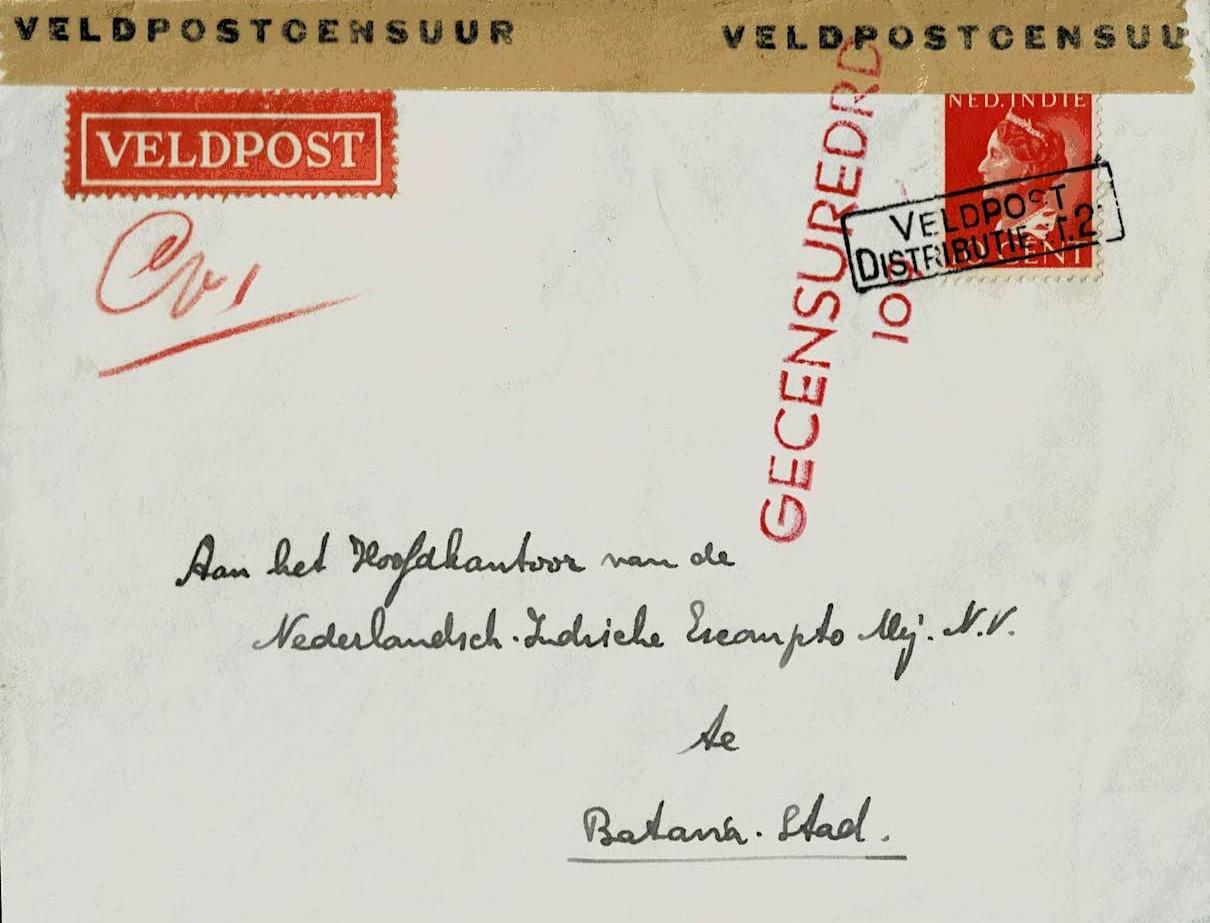 VELDPOSTCENSUUR VELDPOSTCENSUU
VELDPOST
NED. INDIE
VELDPOST
DISTRIBUTIE T.2
CENT
GECENSUREDRD
10
Aan het Hoofdkantoor van de
Nederlandsch-Indische Escompto Mij. N.V.
te
Batavia-Stad.